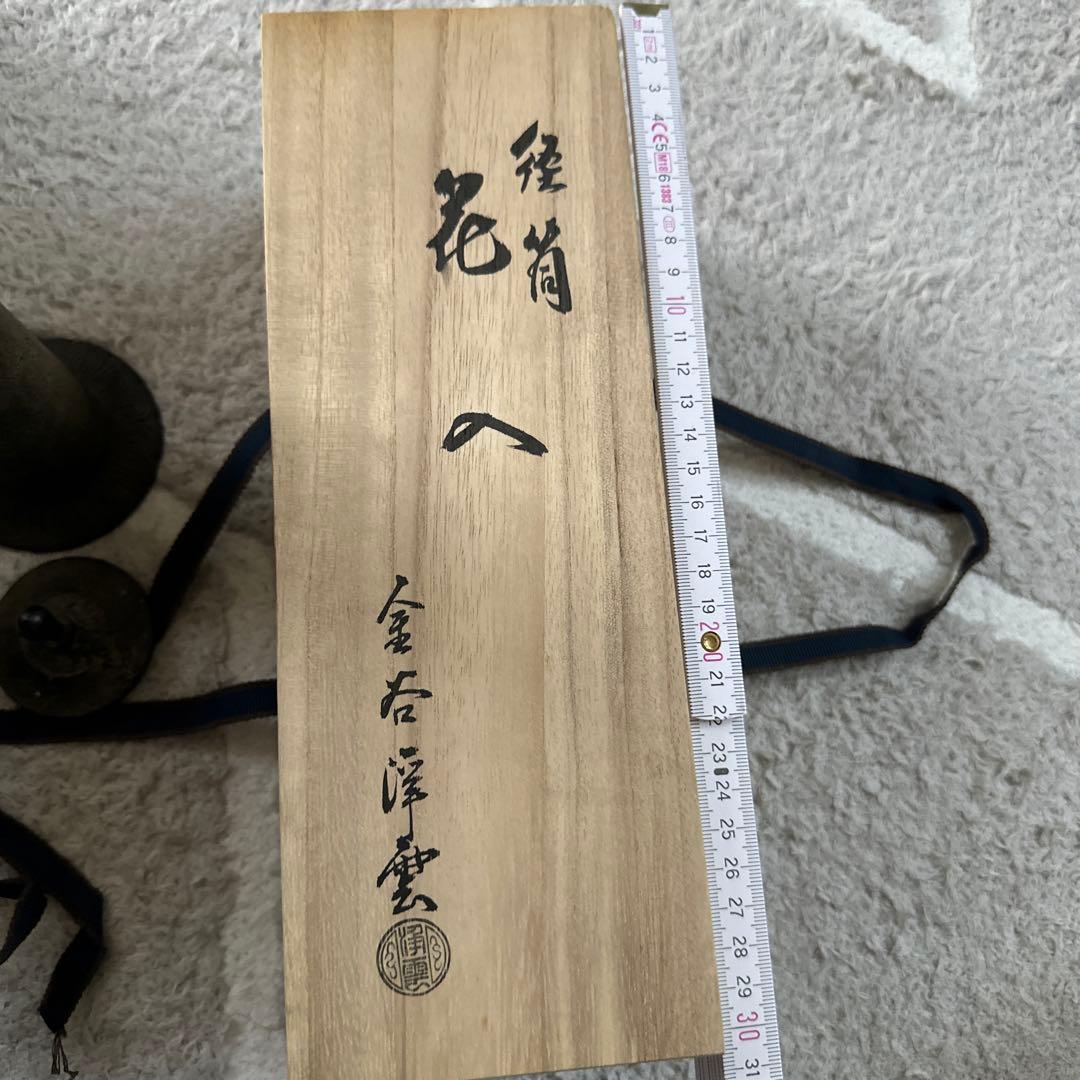 経筒
花入
金谷浄雲
浄雲
1 2 3 4 5 6 7 8 9 10 11 12 13 14 15 16 17 18 19 20 21 22 23 24 25 26 27 28 29 30 31
CE M18 1383 III